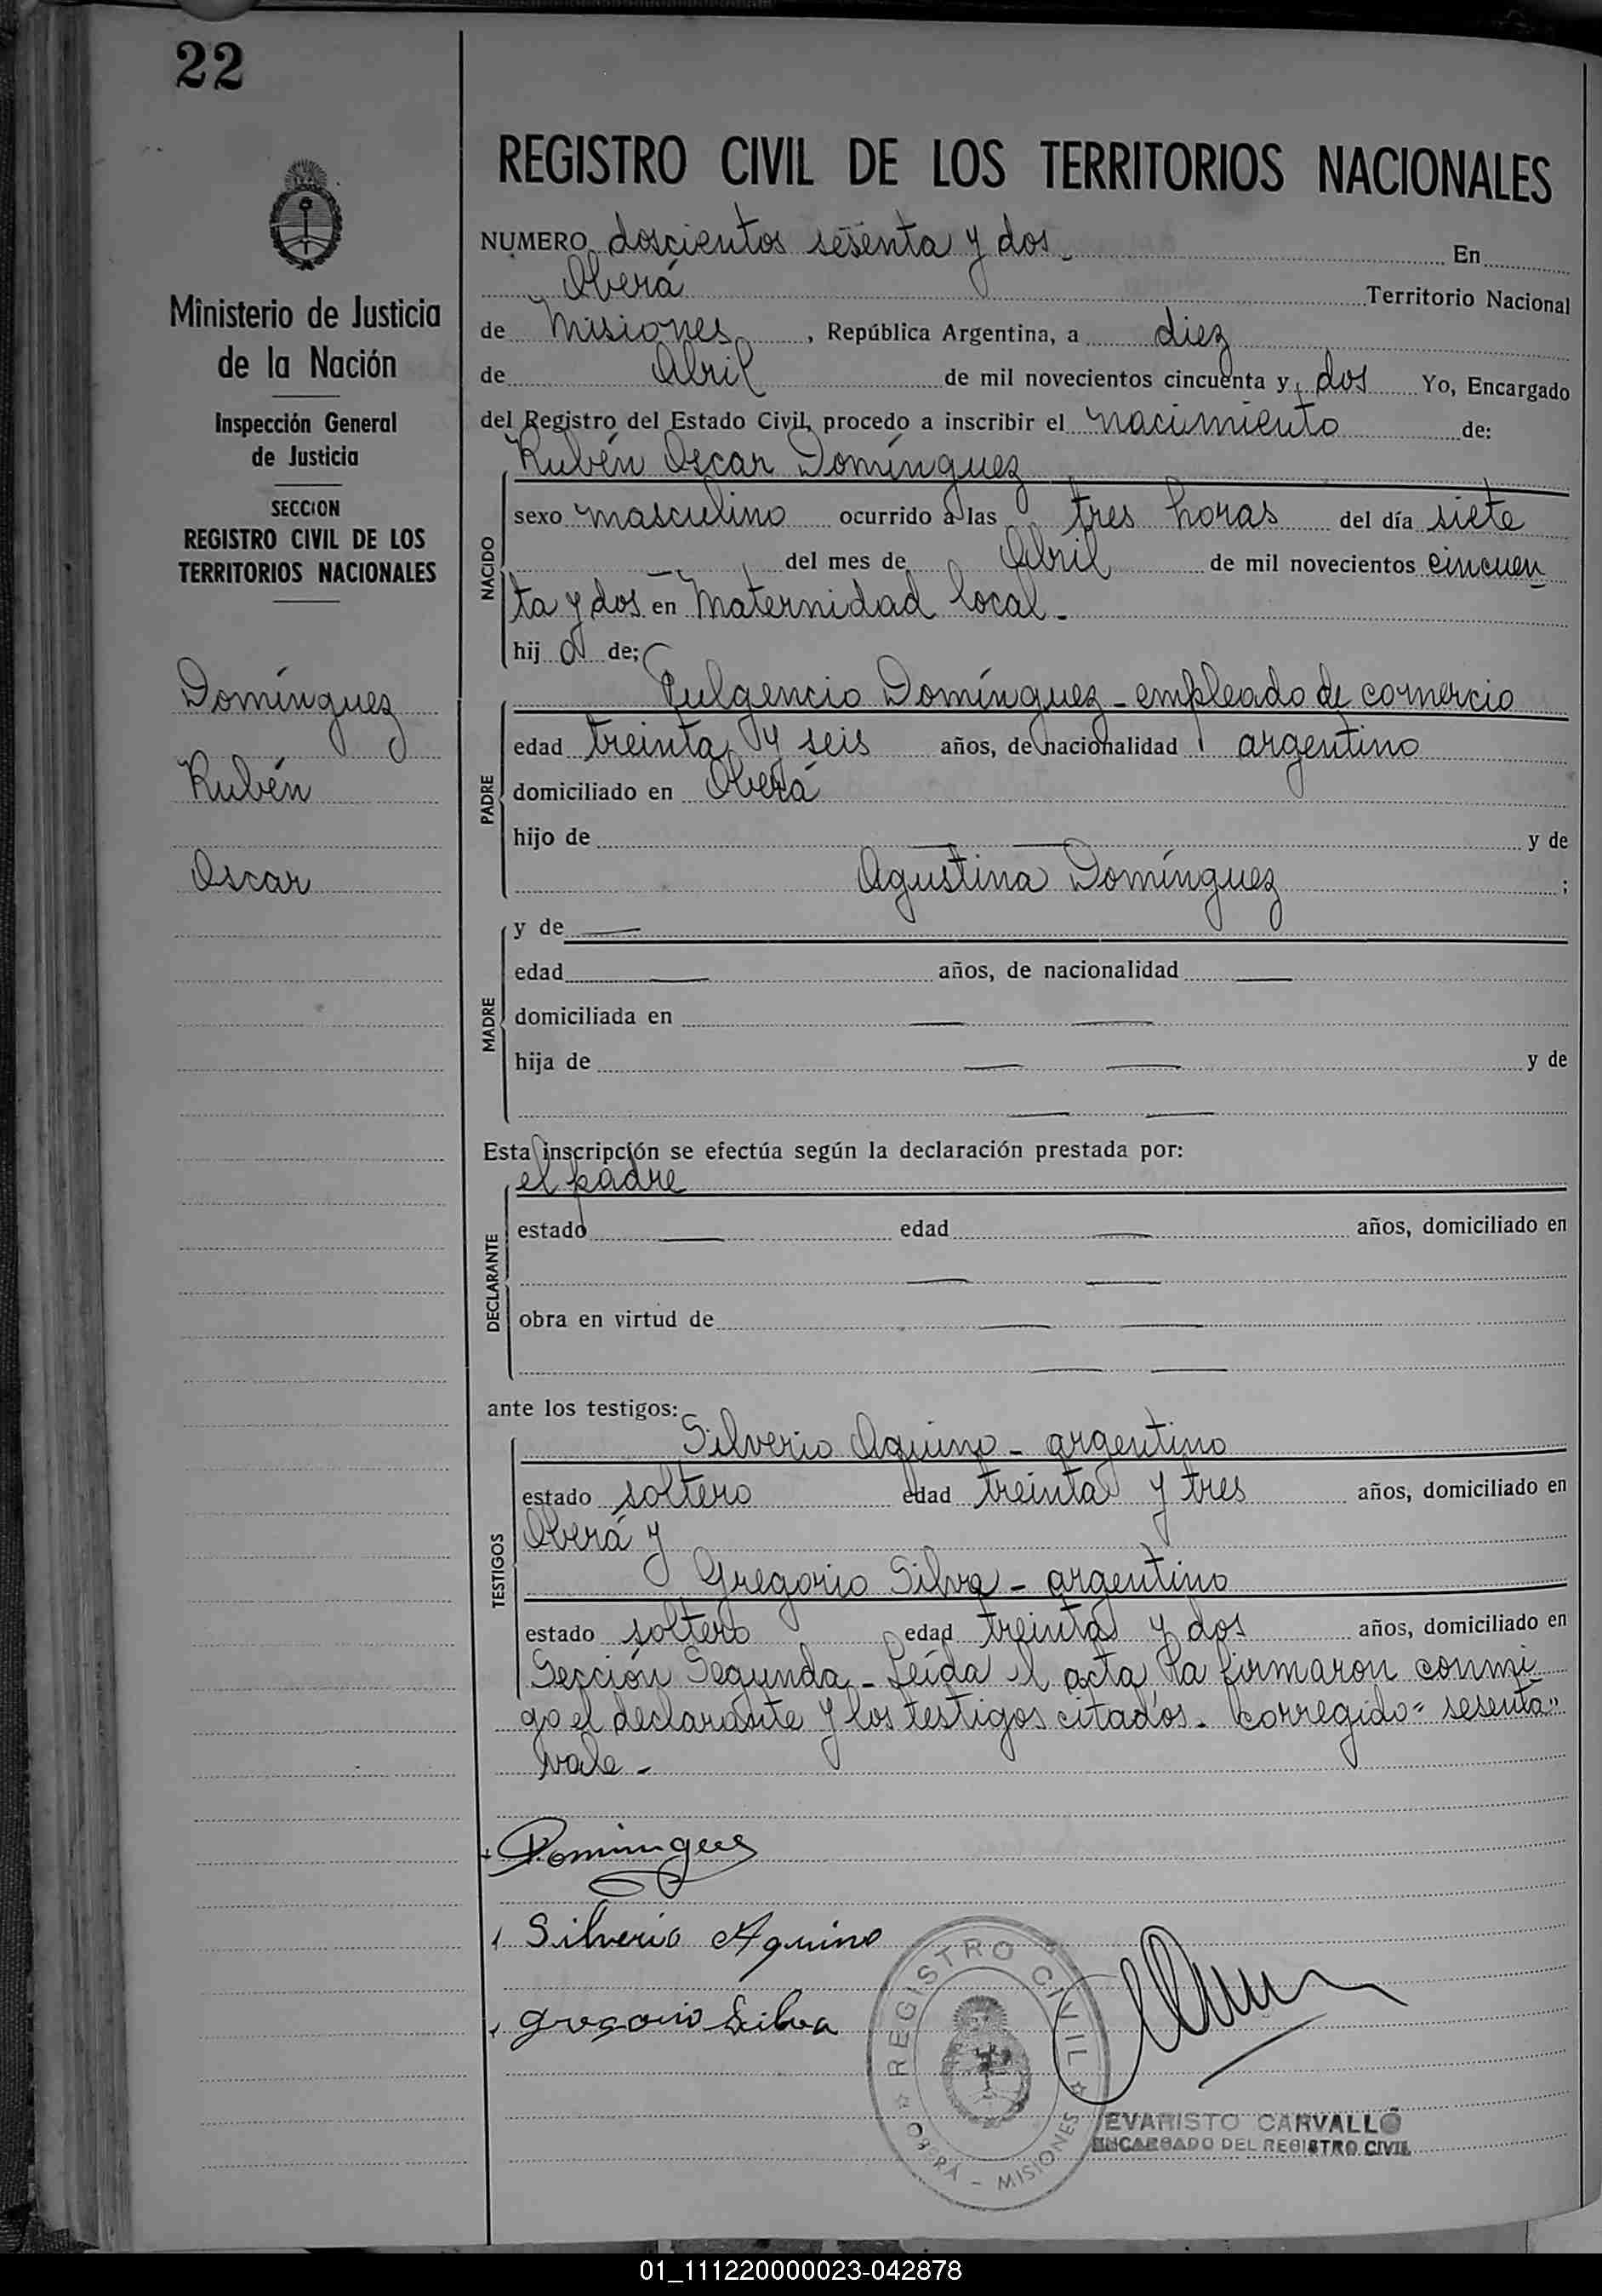 22
REGISTRO CIVIL DE LOS TERRITORIOS NACIONALES
Ministerio de Justicia
de la Nación
Inspección General
de Justicia
SECCION
REGISTRO CIVIL DE LOS
TERRITORIOS NACIONALES
Domínguez
Rubén
Oscar
NUMERO doscientos sesenta y dos. En
Oberá Territorio Nacional
de Misiones, República Argentina, a diez
de Abril de mil novecientos cincuenta y dos Yo, Encargado
del Registro del Estado Civil, procedo a inscribir el nacimiento de:
Rubén Oscar Domínguez
NACIDO
sexo masculino ocurrido a las tres horas del día siete
del mes de Abril de mil novecientos cincuen
ta y dos en Maternidad local.
hij o de;
Fulgencio Domínguez - empleado de comercio
PADRE
edad treinta y seis años, de nacionalidad argentino
domiciliado en Oberá
hijo de — — y de
Agustina Domínguez ;
y de —
MADRE
edad — años, de nacionalidad —
domiciliada en — —
hija de — — y de
— —
Esta inscripción se efectúa según la declaración prestada por:
el padre
DECLARANTE
estado — edad — años, domiciliado en
— —
obra en virtud de — —
— —
ante los testigos:
Silverio Aquino - argentino
TESTIGOS
estado soltero edad treinta y tres años, domiciliado en
Oberá y
Gregorio Silva - argentino
estado soltero edad treinta y dos años, domiciliado en
Sección Segunda - Leída el acta la firmaron conmi
go el declarante y los testigos citados. Corregido = sesenta"
vale -
Domingues
Silverio Aquino
gregorio Silva
REGISTRO CIVIL
OBERÁ - MISIONES
EVARISTO CARVALLO
ENCARGADO DEL REGISTRO CIVIL
01_111220000023-042878